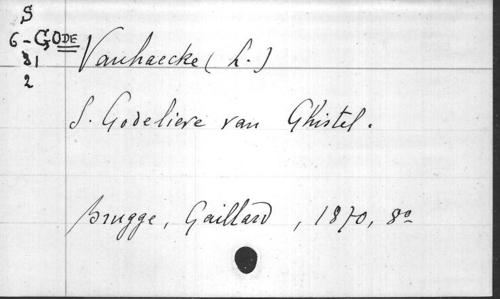 S
6-GODE
31
2
Vanhaecke (L.)
S. Godelieve van Ghistel.
Brugge, Gaillard, 1870, 8º